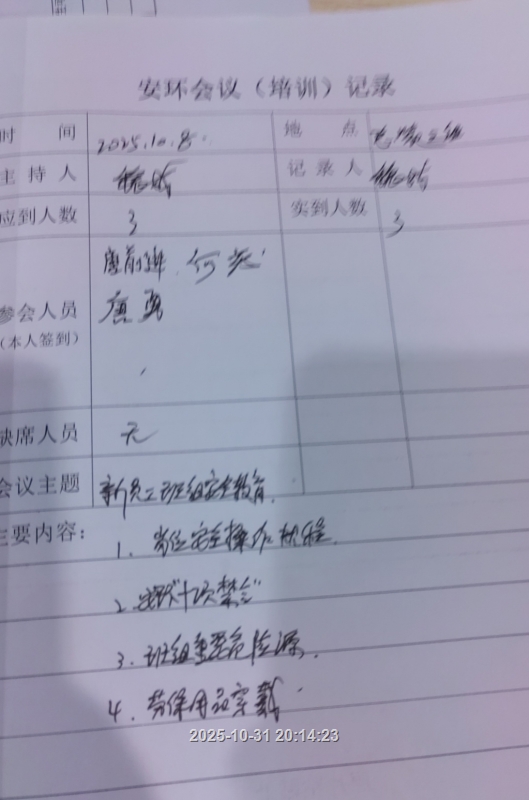 安环会议（培训）记录
时 间 2025.10.8. 地 点
主 持 人 记 录 人
应到人数 3 实到人数 3
唐前进 何
参会人员 唐勇
（本人签到）
缺席人员 无
会议主题 新员工班组安全教育.
主要内容：
1. 岗位安全操作规程.
2. 安环"十项禁令"
3. 班组重要危险源.
4. 劳保用品穿戴.
2025-10-31 20:14:23